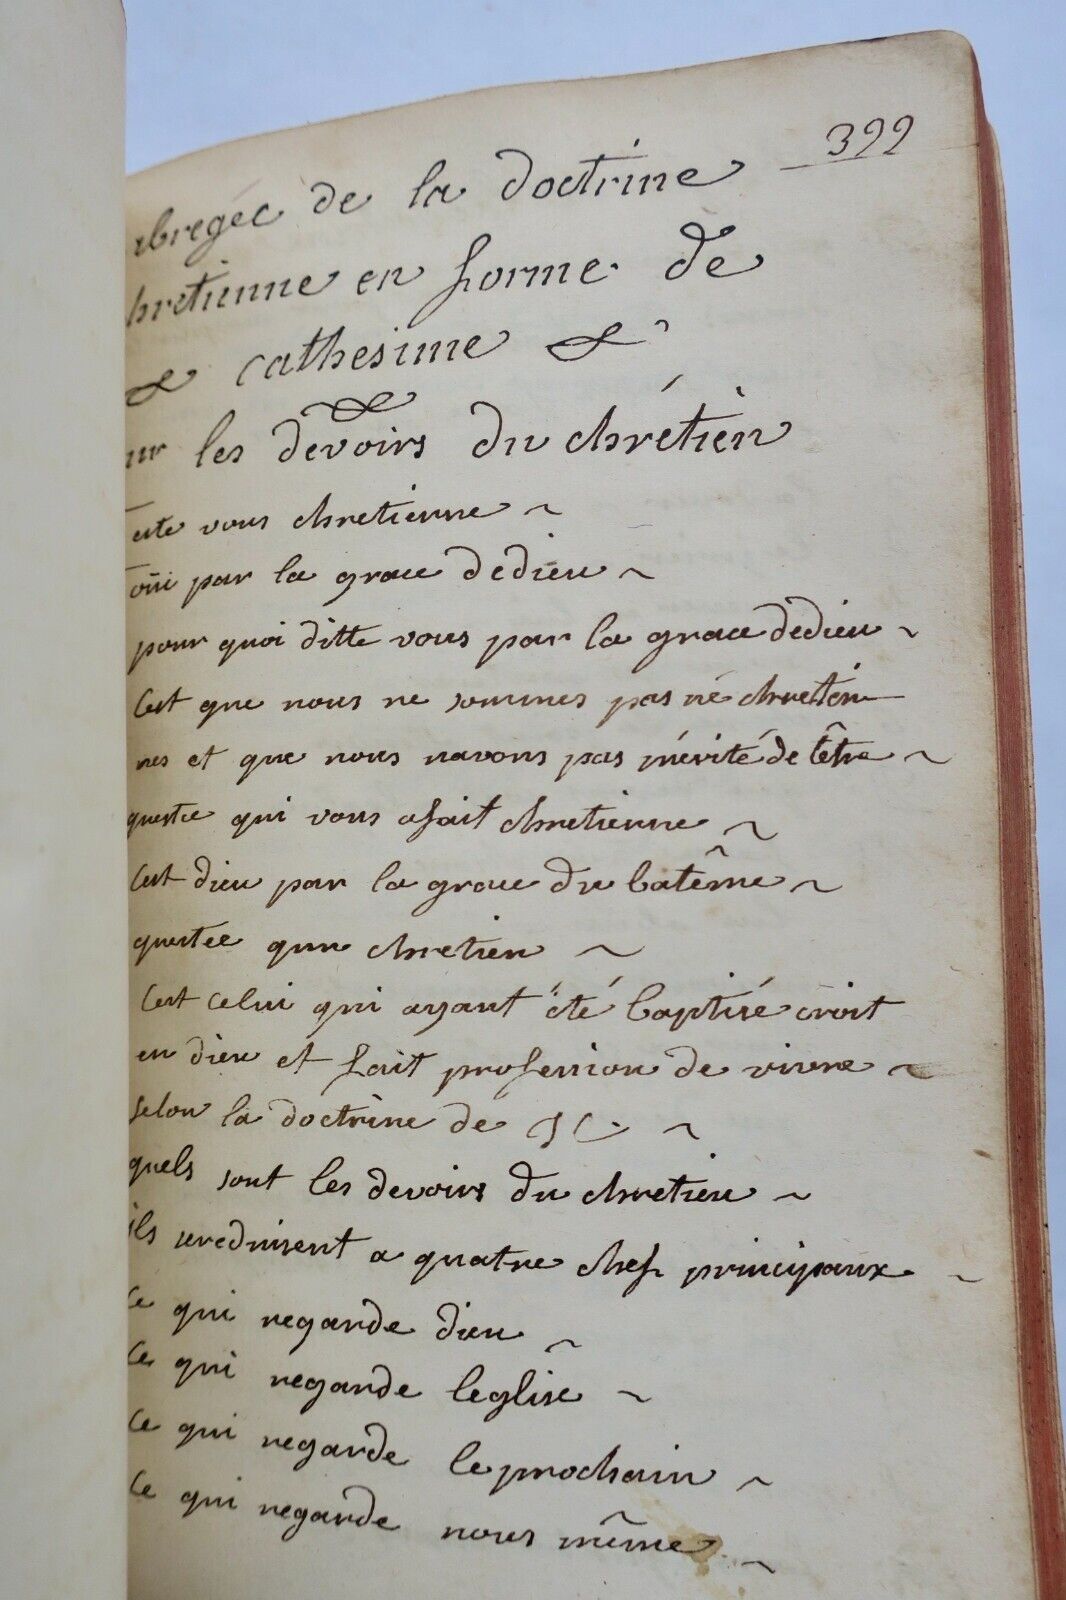 399
abregée de la doctrine
hretienne en forme de
cathesime
ur les devoirs du chrétien
ete vous chretienne ~
oüi par la grace dedieu ~
pour quoi ditte vous par la grace dedieu ~
Cest que nous ne sommes pas né chrettien
nes et que nous navons pas mérité de lêtre ~
questce qui vous afait chretienne ~
Cest dieu par la grace du batême ~
questce qun chretien ~
Cest celui qui ayant été baptisé croit
en dieu et fait profession de vivre ~
selon la doctrine de JC. ~
quels sont les devoirs du chretien ~
ils sereduisent a quatre chefs principaux ~
Ce qui regarde dieu ~
Ce qui regarde leglise ~
Ce qui regarde le prochain ~
Ce qui regarde nous même ~